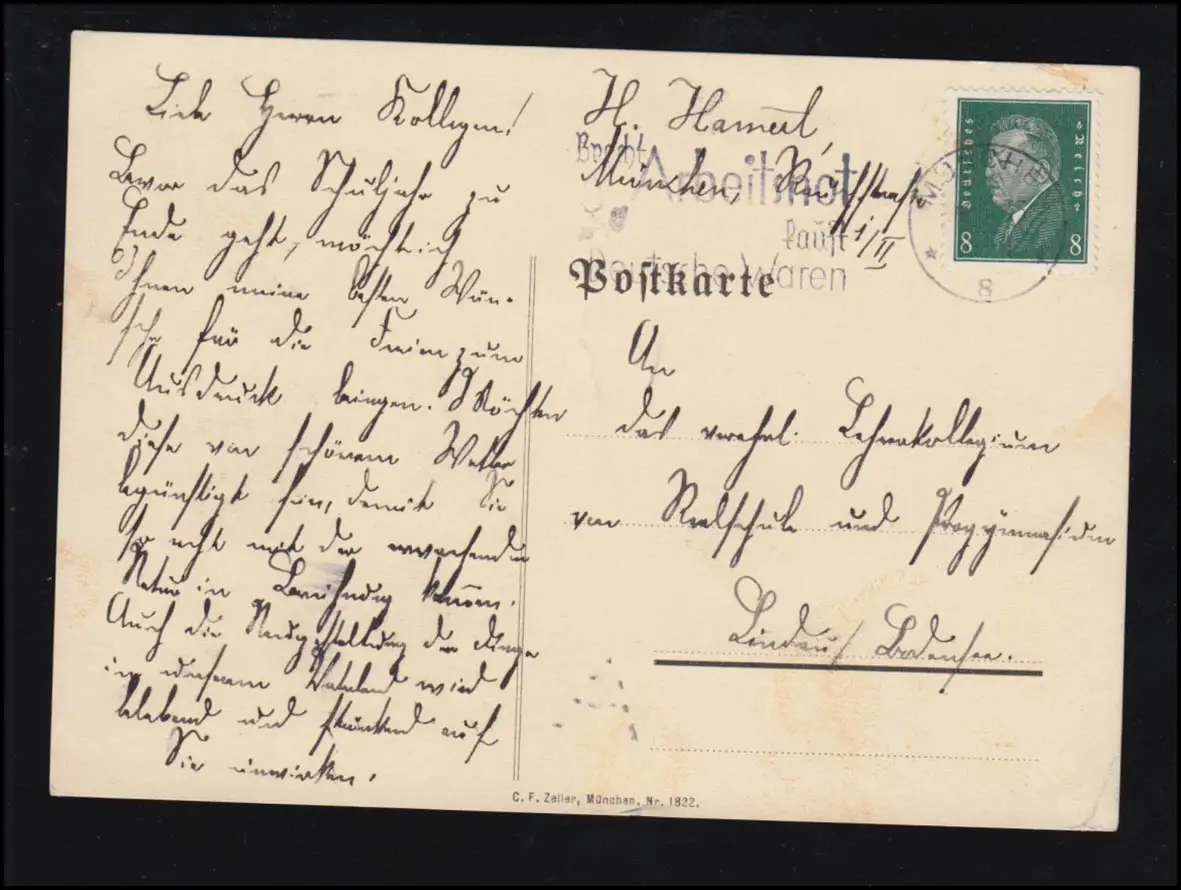 Liebe Herrn Kollegen!
Bevor das Schuljahr zu
Ende geht, möcht ich
Ihnen meine besten Wün-
sche für die Ferien zum
Ausdruck bringen. Möchten
diese von schönem Wetter
begünstigt sein, damit Sie
so recht mit der erwachenden
Natur in Berührung kommen.
Auch die Neugestaltung der Dinge
in unserem Vaterland wird
belebend und stärkend auf
Sie einwirken.
H. Hamerl,
München,
1/II
Brecht
Arbeitsnot
kauft
Deutsche Waren
Postkarte
Deutsches Reich
8 8
MÜNCHEN
8
An
das verehrl. Lehrerkollegium
von Realschule und Progymnasium
Lindau/Bodensee.
C. F. Zeller, München. Nr. 1822.